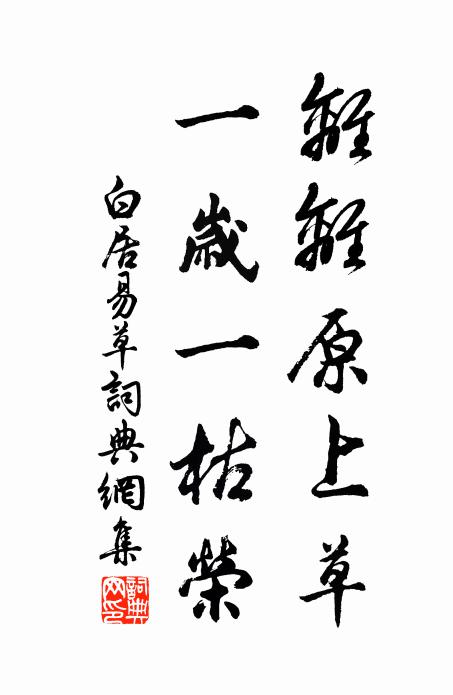 離離原上草
一歲一枯榮
白居易草詞典網集
詞典網印